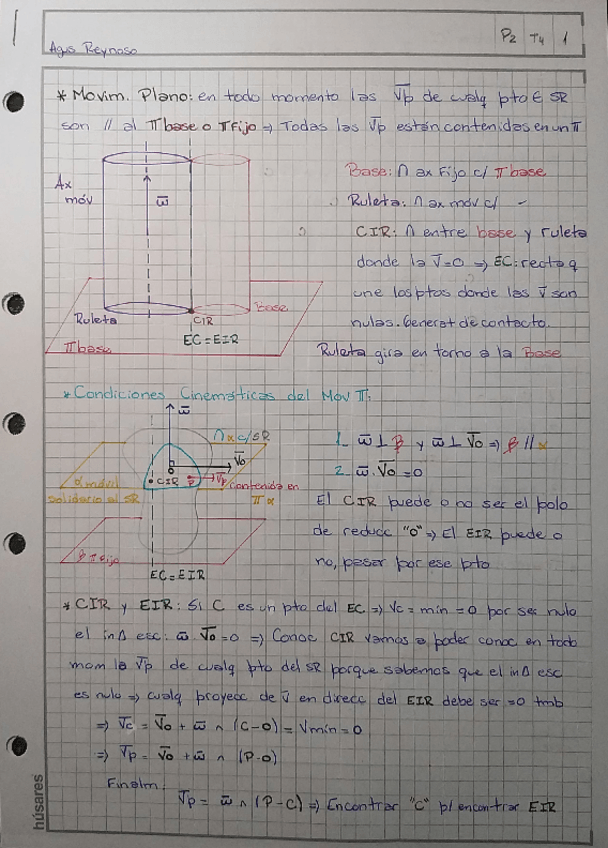 Agus Reynoso
P2 T4 1
* Movim. Plano: en todo momento las V̅p de cualq pto ∈ SR
son // al π base o π fijo ⇒ Todas las V̅p están contenidas en un π
Ax
móv
ω̅
Ruleta
CIR
Base
EC=EIR
π base
Base: ∩ ax fijo c/ π base
Ruleta: ∩ ax móv c/ ~
CIR: ∩ entre base y ruleta
donde la V̅=0 ⇒ EC: recta q
une los ptos donde las V̅ son
nulas. Generat de contacto.
Ruleta gira en torno a la Base
* Condiciones Cinemáticas del Mov π:
ω̅
∩ α c/ SR
V̅o
CIR
P
V̅p contenida en
π α
α móvil
solidario al SR
β π fijo
EC=EIR
1_ ω̅ ⊥ β y ω̅ ⊥ V̅o ⇒ β // α
2_ ω̅ . V̅o = 0
El CIR puede o no ser el polo
de reducc "o" ⇒ El EIR puede o
no, pasar por ese pto
* CIR y EIR: Si C es un pto del EC ⇒ Vc = mín = 0 por ser nulo
el inΔ esc: ω̅ . V̅o = 0 ⇒ Conoc CIR vamos a poder conoc en todo
mom la V̅p de cualq pto del SR porque sabemos que el inΔ esc
es nulo ⇒ cualq proyecc de V̅ en direcc del EIR debe ser =0 tmb
⇒ V̅c = V̅o + ω̅ ∧ (C-O) = Vmín = 0
⇒ V̅p = V̅o + ω̅ ∧ (P-O)
Finalm:
V̅p = ω̅ ∧ (P-C) ⇒ Encontrar "C" p/ encontrar EIR
húsares